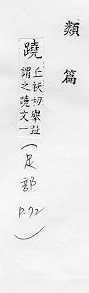 類篇
蹺 丘祅切舉趾
謂之蹺文一
(足部 P.72)